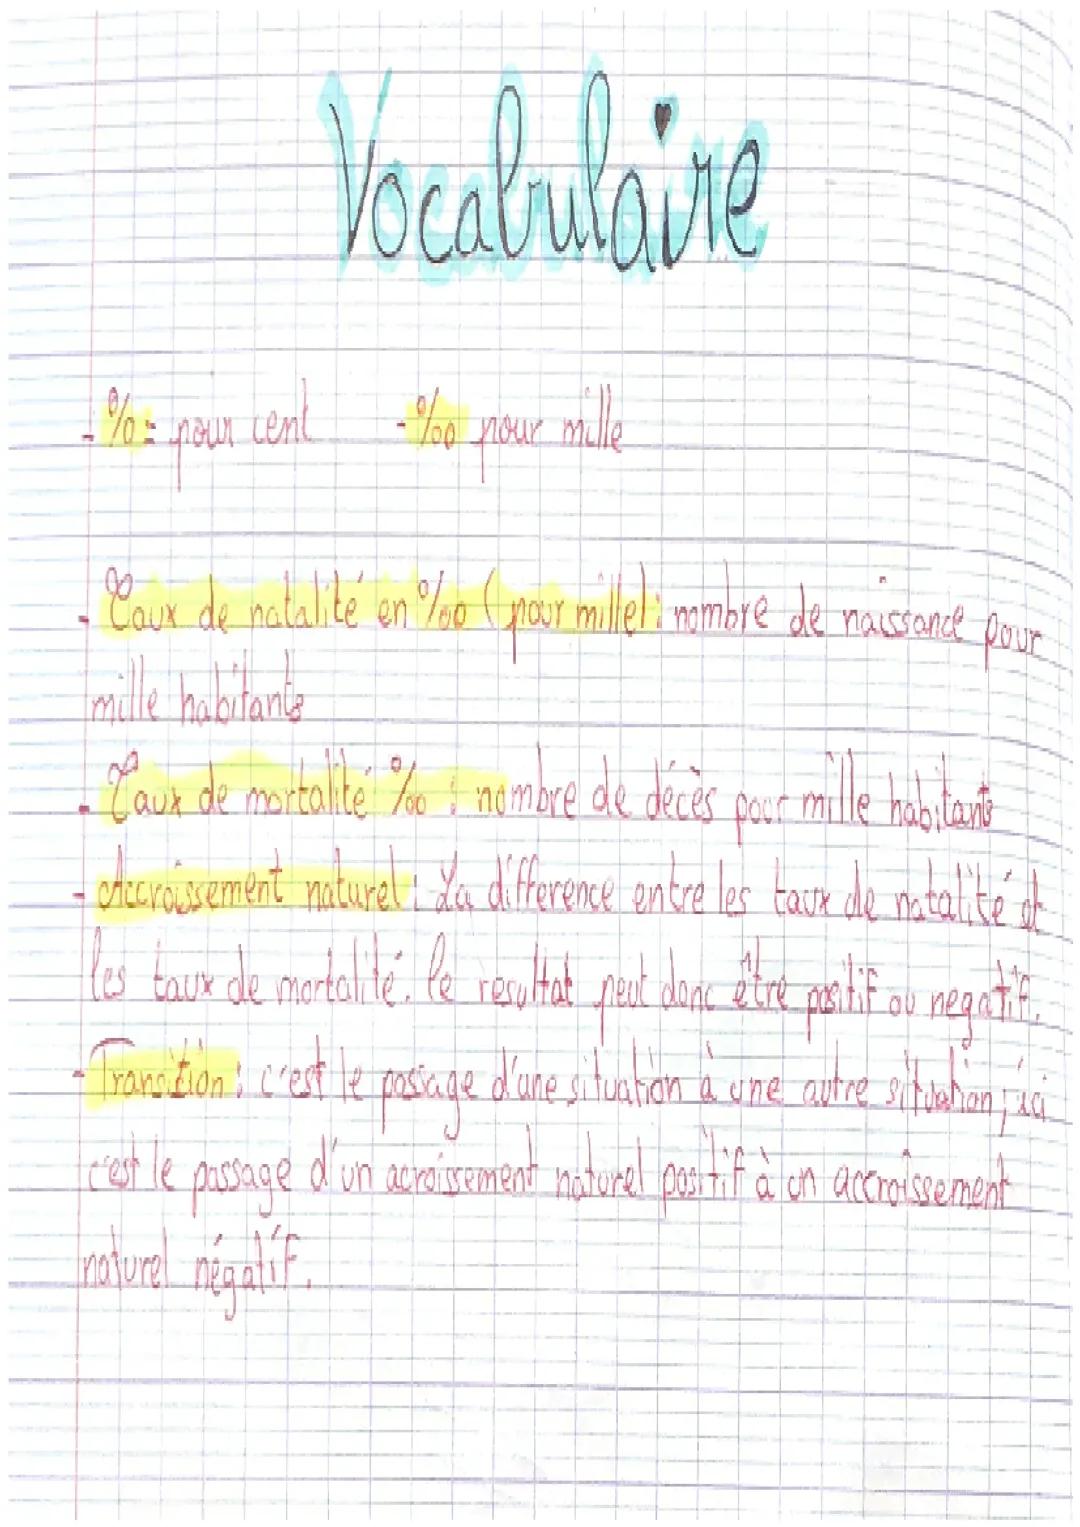 Vocabulaire
- % = pour cent - ‰ pour mille
- Taux de natalité en ‰ (pour mille) : nombre de naissance pour
mille habitants
- Taux de mortalité ‰ : nombre de décès pour mille habitants
- Accroissement naturel : La différence entre les taux de natalité et
les taux de mortalité. le résultat peut donc être positif ou negatif.
- Transition : c'est le passage d'une situation à une autre situation ; ici
c'est le passage d'un acroissement naturel positif à un accroissement
naturel négatif.